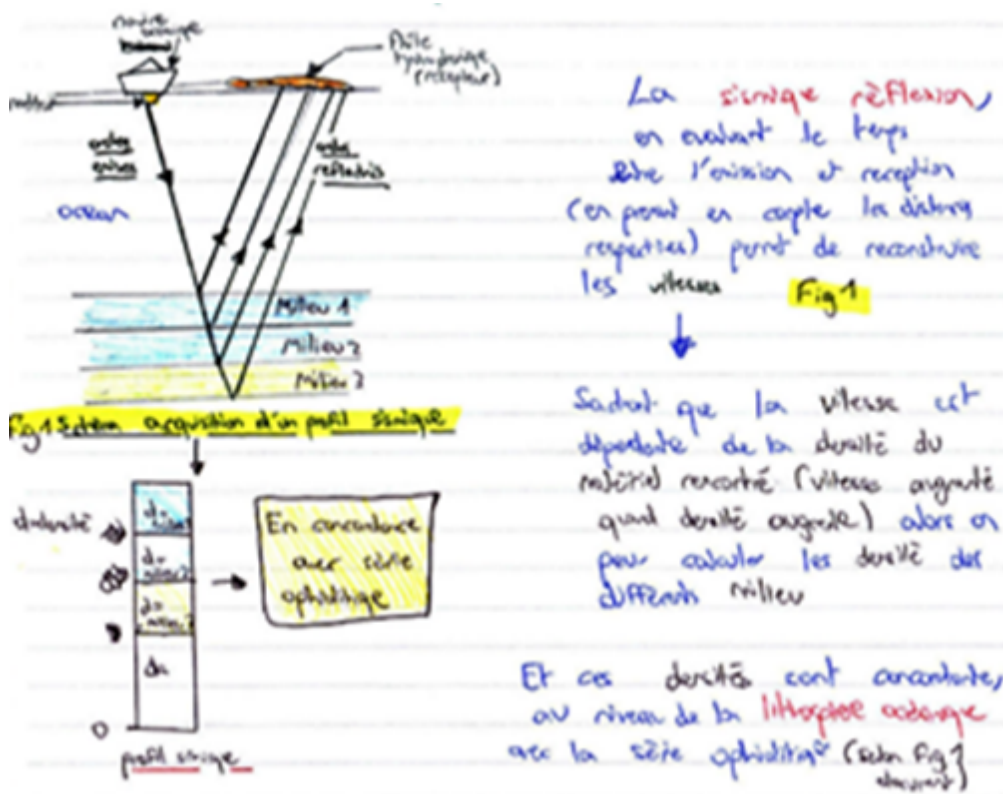 navire
sismique
flûte
hydrophonique
(récepteur)
ondes
émises
ondes
réfléchis
océan
Milieu 1
Milieu 2
Milieu 3
Fig 1 Schéma acquisition d'un profil sismique
d=densité
d=
milieu 1
d=
milieu 2
d=
milieu 3
0
profil sismique
En concordance
avec série
ophiolitique
La sismique réflexion,
en evaluant le temps
entre l'emission et reception
(en prenant en compte les distances
respectives) permet de reconstruire
les vitesses Fig 1
Sachant que la vitesse est
dépendante de la densité du
matériel rencontré (vitesse augmente
quand densité augmente) alors on
peur calculer les densité des
différents milieu
Et ces densités sont concordante,
au niveau de la lithosphère océanique
avec la série ophiolitique (selon Fig 1
document)